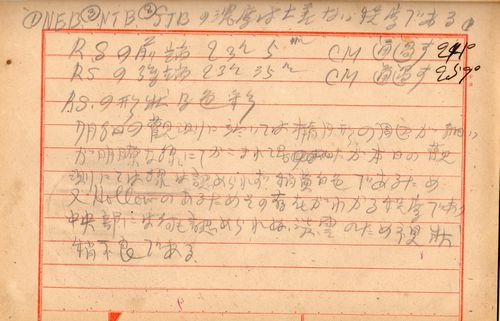 ①NEB ②NTB ③STBの濃度は大差ない程度である。
RSの前端 23h 5m CM 通過す 241°
RSの後端 23h 35m CM 通過す 259°
RSの形状及色彩
7月8日の観測に於ては楕円形の周囲が細い
が明瞭な線にてかこまれて居 が本日の観
測にては線は認められず稍黄白色であるため
又Hollowのあるためその存在がわかる程度であり
中央部には何も認められぬ、淡雲のため視状
稍不良である。